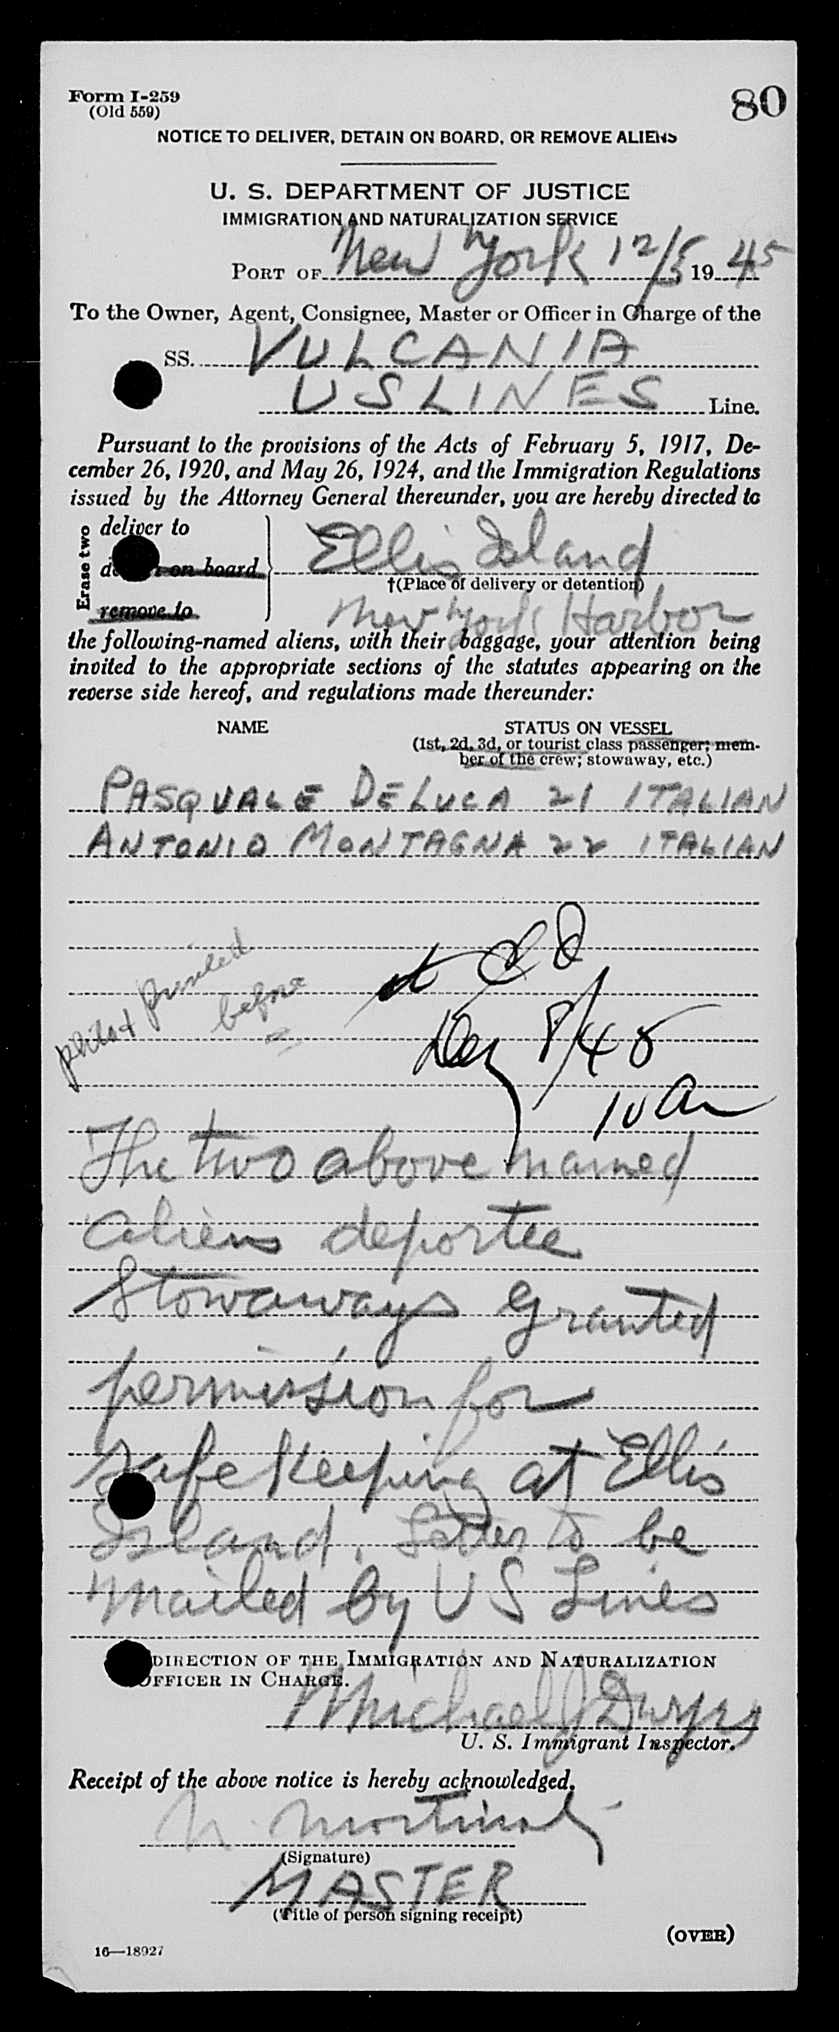 Form I-259
(Old 559)
80
NOTICE TO DELIVER, DETAIN ON BOARD, OR REMOVE ALIENS
U. S. DEPARTMENT OF JUSTICE
IMMIGRATION AND NATURALIZATION SERVICE
PORT OF New York 12/5 1945
To the Owner, Agent, Consignee, Master or Officer in Charge of the
SS. VULCANIA
US LINES Line.
Pursuant to the provisions of the Acts of February 5, 1917, De-
cember 26, 1920, and May 26, 1924, and the Immigration Regulations
issued by the Attorney General thereunder, you are hereby directed to
Erase two
deliver to
on board
remove to
Ellis Island
†(Place of delivery or detention)
New York Harbor
the following-named aliens, with their baggage, your attention being
invited to the appropriate sections of the statutes appearing on the
reverse side hereof, and regulations made thereunder:
NAME STATUS ON VESSEL
(1st, 2d, 3d, or tourist class passenger; mem-
ber of the crew; stowaway, etc.)
PASQUALE DELUCA 21 ITALIAN
ANTONIO MONTAGNA 22 ITALIAN
before
Dec 8/45
10 am
The two above named
aliens deportee
Stowaways Granted
permission for
safe keeping at Ellis
Island. Letter to be
mailed by US Lines
DIRECTION OF THE IMMIGRATION AND NATURALIZATION
OFFICER IN CHARGE.
Michael J Dwyer
U. S. Immigrant Inspector.
Receipt of the above notice is hereby acknowledged.
(Signature)
MASTER
(Title of person signing receipt)
(OVER)
16—18927